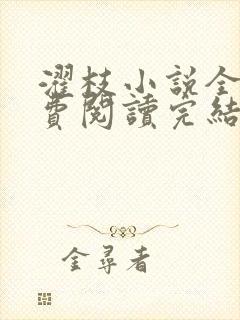 濯枝小說全
費閱讀完結
金尋者